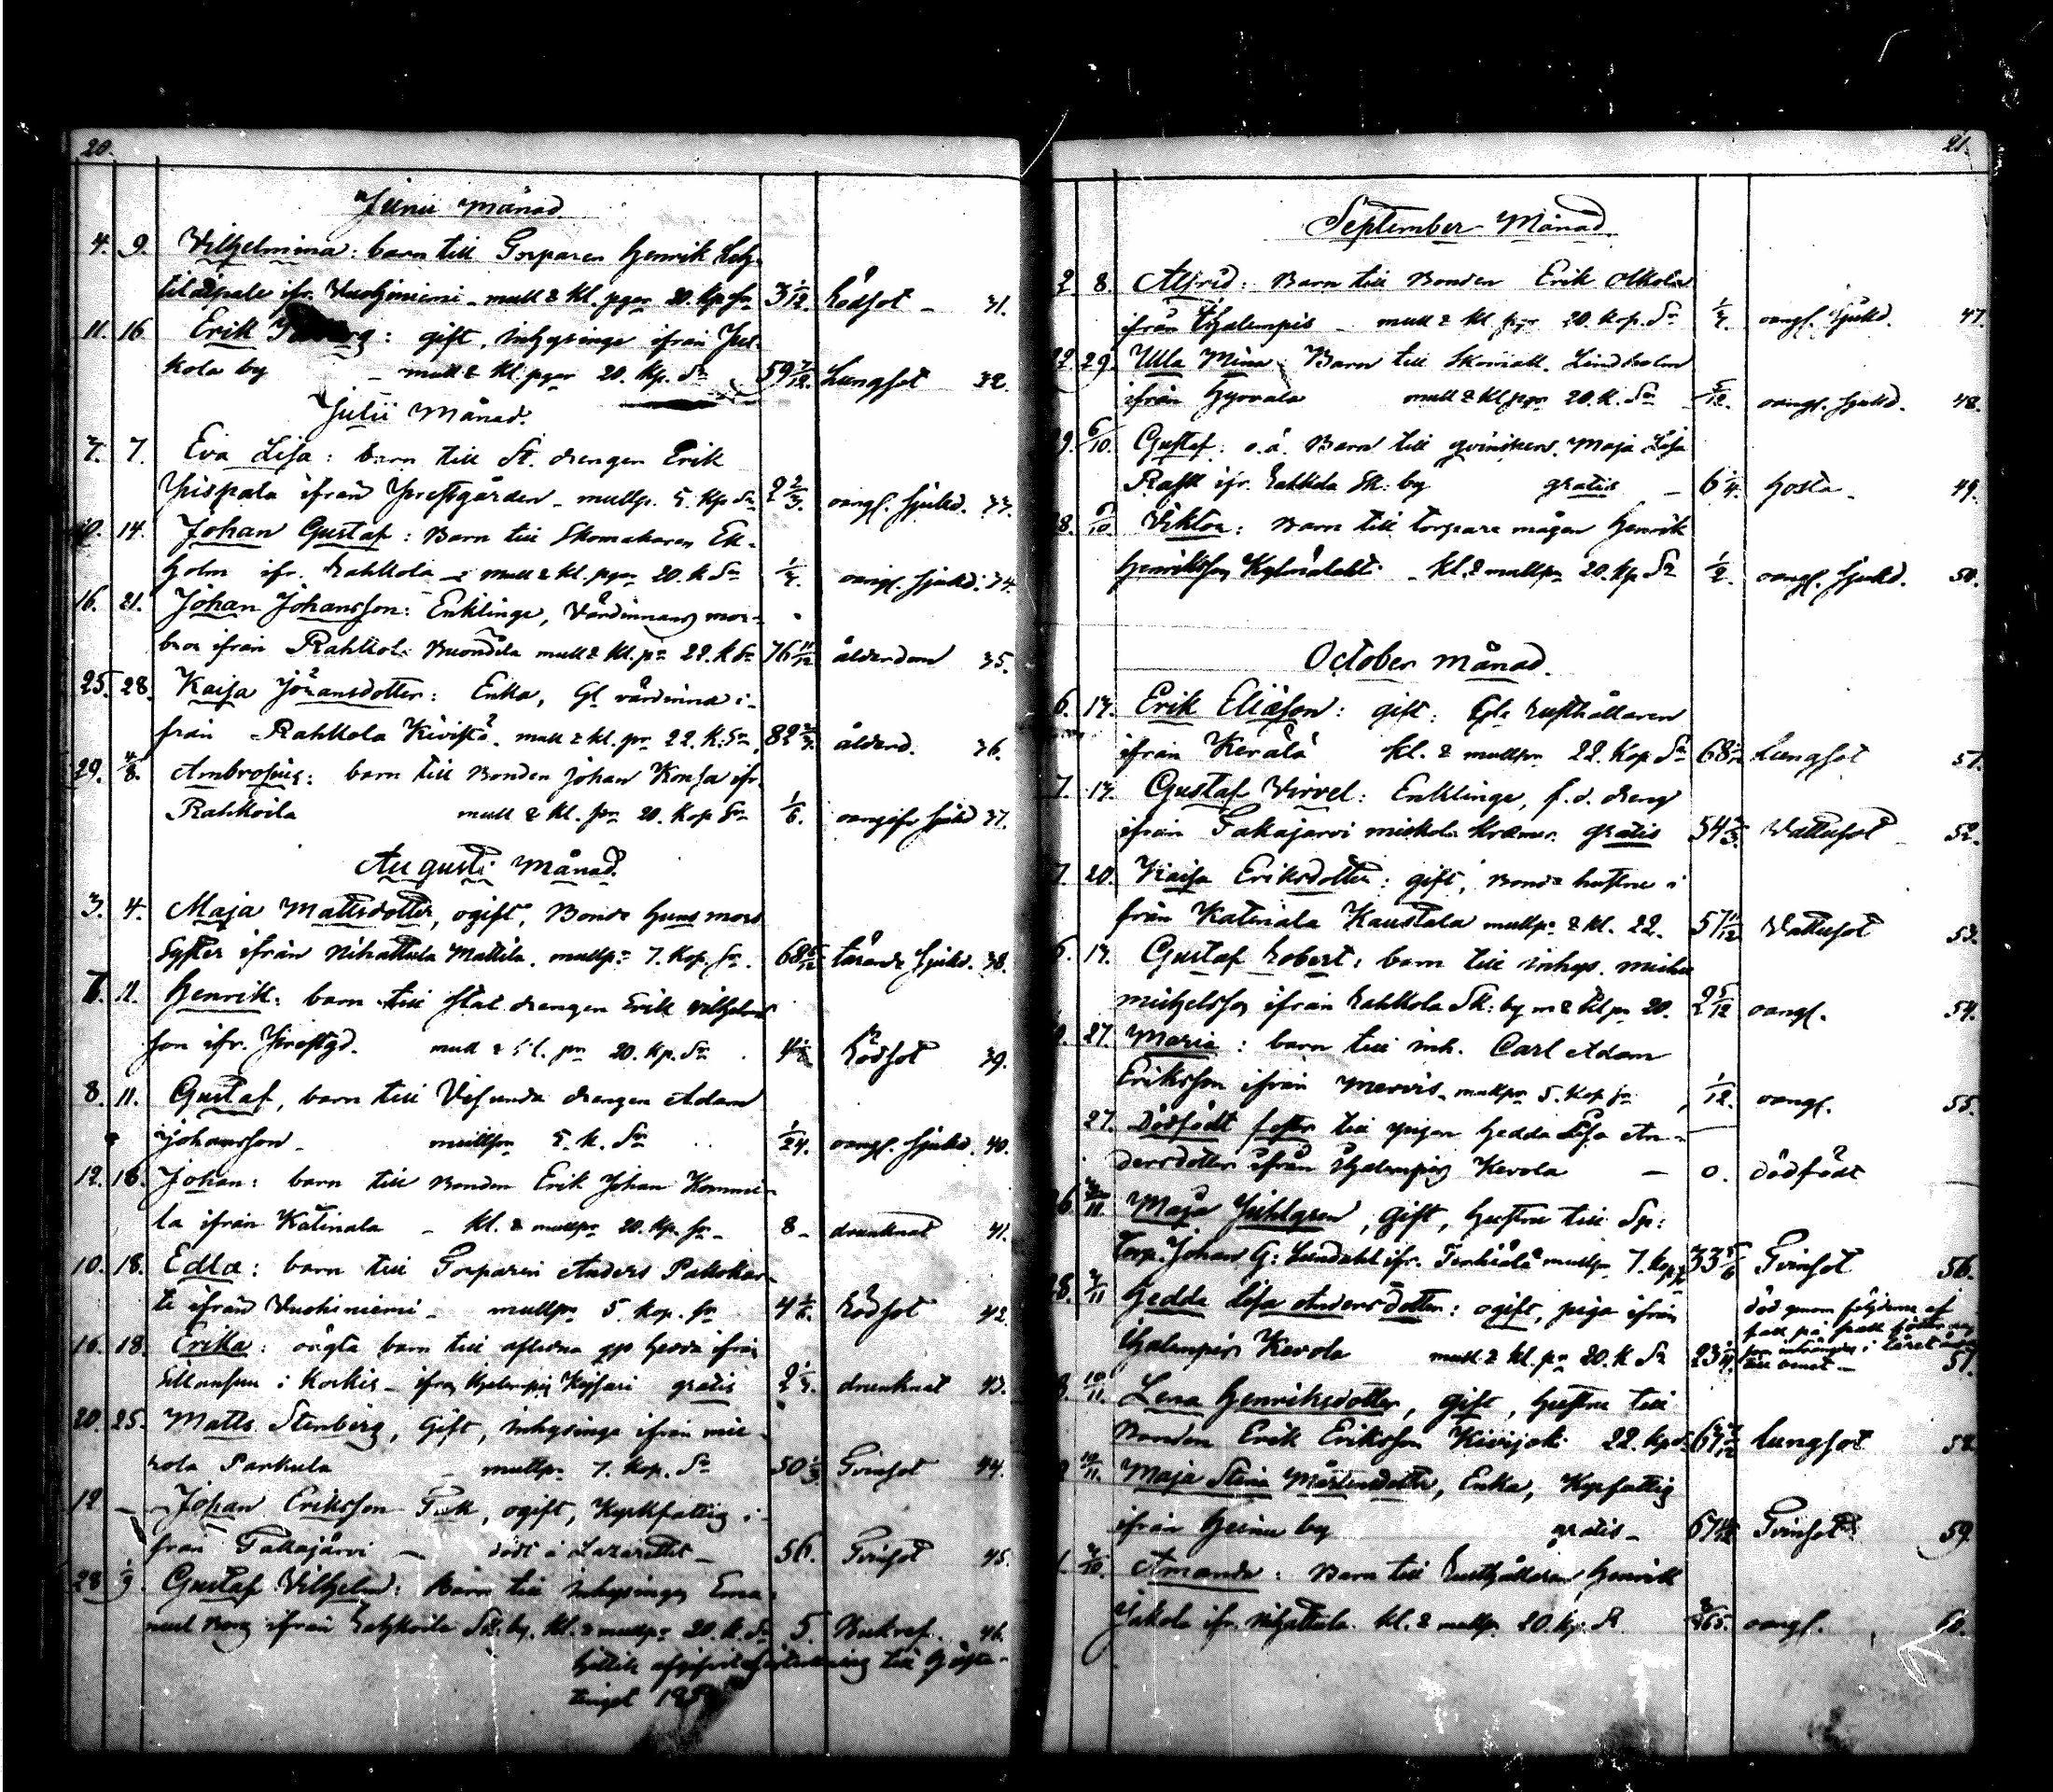 20.
Junii Månad
4. 9. Vilhelmina: barn till Torparen Henrik
ifr. Vuohiniemi - mull & kl. pgar 20. Kp. Sr 3 1/12. Rödsot - 31.
11. 16 Erik : gift, inhysinge ifrån Jut-
kola by - mull & kl. pgar 20. Kp. Sr 59 7/12. Lungsot 32.
Julii Månad.
7. 7. Eva Lisa: barn till St. drengen Erik
ifrån Prestgården - mullp. 5. Kp Sr 2 2/3. oangf. sjukd. 33.
10. 14. Johan Gustaf: Barn till Skomakaren Ek-
holm ifr. Rahkola - mull & kl. pgar 20. k Sr oangf. sjukd. 34.
16. 21. Johan Johansson: Enklinge, Värdinnans mor-
bror ifrån Rahkol. mull & kl. pr 22. k Sr 76 11/12 ålderdom 35.
25. 28. Kaisa Johansdotter: Enka, Gl värdinna i-
från Rahkola Kivistö. mull & kl. pr 22. K. Sr. 82 ålderd. 36.
29. 4/8. Ambrosius: barn till Bonden Johan Konsa ifr.
Rahkoila mull & kl. pr 20. Kop Sr 1/6. oangifv sjukd 37.
Augusti Månad
3. 4. Maja Mattsdotter, ogift, Bonde Hens mors
syster ifrån Nihattula Mattila. mullpr 7. Kop. Sr. 68 tärande sjukd. 38.
7. 11. Henrik: barn till stat drengen Erik Vilhelms
son ifr. Prestgd. mull & kl. pr 20. Kp. Sr. Rödsot 39.
8. 11. Gustaf, barn till Visunda drengen Adam
Johansson - mullpr 5. k. Sr 1/24. oangf. sjukd. 40.
12. 16. Johan: barn till Bonden Erik Johan Homme-
la ifrån Katinala - kl. & mullpr 20. Kp. Sr - 8 - drunknad 41.
10. 18. Edla: barn till Torparen Anders Pakkar-
ti ifrån Vuohiniemi - mullpr 5. Kop. Sr 4 Rödsot 42.
16. 18. Erika: oägta barn till aflidna Hedda ifrån
i - ifrån gratis 2 drunknat 43.
20. 25. Matts Stenberg, Gift, inhysinge ifrån mie-
kola Parkula - mullpr 7. Kop. Sr 50 1/3 Tvinsot 44.
12 - Johan Eriksson, ogift, Kyrkfattig i-
från Takajärvi - död i Lazarettet - 56. Tvinsot 45.
28 1/9. Gustaf Vilhelm: Barn till Inhysingen Ema-
nuel Borg ifrån Sk: by. kl. & mullpr 20. k. Sr 5. Bukref. 46.
till
tinget
21.
September Månad.
2. 8. Alfrid: Barn till Bonden Erik Ollola
ifrån Hjalempis - mull & kl pgr 20. Kop. Sr oangf. sjukd. 47.
22 29. Ulla Mina: Barn till Skomak. Lindholm
ifrån Hyvala mull & kl pgr 20. K. Sr 5/12. oangf. sjukd. 48.
29. 6/10. Gustaf: o.ä. Barn till qvinskan Maja Lisa
Rask ifr. Rahkola Sk: by gratis - 6 1/4. Hosta - 49.
28. 6/10. Viktor: Barn till torpare mågen Henrik
Henriksson - kl. & mullpr 20. kp Sr 1/2. oangf. sjukd. 50.
October Månad.
6. 13. Erik Eliasson: gift: Gla Rusthållaren
ifrån Kerälä kl. & mullpr 22. Kop Sr 68 Lungsot 51.
7. 13. Gustaf Virvel: Enklinge, f.d. dreng
ifrån Takajarvi gratis 54 Vattusot 52.
7. 20. Kaisa Eriksdotter: gift, Bonde hustru i
från Katinala Kaustala mullpr & kl. 22. 57 11/12 Vattusot 53.
6. 13. Gustaf Robert: barn till inhys. Michel
Michelsson ifrån Rahkola Sk: by m & kl pr 20. 2 5/12 oangf. 54.
27. Maria: barn till inh. Carl Adam
Eriksson ifrån Mervis - mullpr 5. Kop Sr 1/12. oangf. 55.
27. Dödfödt foster till pigan Hedda Lisa An-
dersdotter ifrån Hjalempis Kerola - 0. dödfödt
26 Maja Juhlgren, gift, hustru till Sp:
Torp. Johan G: Lundahl ifr. mullpr 7. kop 33 5/6 Tvinsot 56.
28. 3/11 Hedda Lisa Andersdotter: ogift, piga ifrån
Hjalempis Kerola mull & kl. pr 20. K Sr 23 död genom följderna af
fall på
som inträngdes i låret
57.
8. 10/11. Lena Henriksdotter, gift, hustru till
Bonden Erik Eriksson Kivijok. 22. kp Sr 67 Lungsot 58
10/11. Maja Stina Mårtensdotter, Enka, Kyrkfattig
ifrån Heinu by gratis - 67 Tvinsot 59.
Amanda: Barn till Rusthållaren Henrik
Jakola ifr. Nihattula. kl. & mullpr 20. kp. Sr 365. oangf. 60.